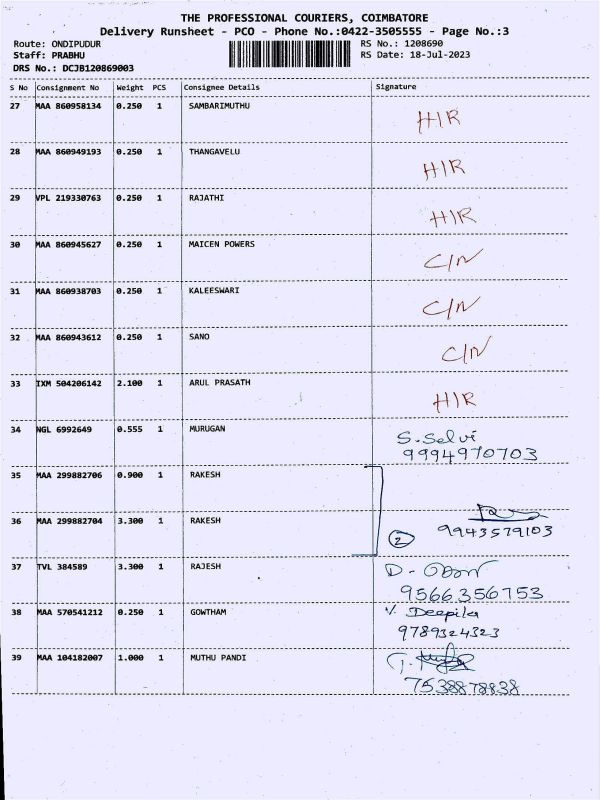 THE PROFESSIONAL COURIERS, COIMBATORE
Delivery Runsheet - PCO - Phone No.:0422-3505555 - Page No.:3
Route: ONDIPUDUR RS No.: 1208690
Staff: PRABHU RS Date: 18-Jul-2023
DRS No.: DCJB120869003
S No Consignment No Weight PCS Consignee Details Signature
27 MAA 860958134 0.250 1 SAMBARIMUTHU H/R
28 MAA 860949193 0.250 1 THANGAVELU H/R
29 VPL 219330763 0.250 1 RAJATHI H/R
30 MAA 860945627 0.250 1 MAICEN POWERS C/N
31 MAA 860938703 0.250 1 KALEESWARI C/N
32 MAA 860943612 0.250 1 SANO C/N
33 IXM 504206142 2.100 1 ARUL PRASATH H/R
34 NGL 6992649 0.555 1 MURUGAN S. Selvi
9994970703
35 MAA 299882706 0.900 1 RAKESH
36 MAA 299882704 3.300 1 RAKESH 2 9943579103
37 TVL 384589 3.300 1 RAJESH D.
9566356753
38 MAA 570541212 0.250 1 GOWTHAM Deepika
9789324323
39 MAA 104182007 1.000 1 MUTHU PANDI
7538878838